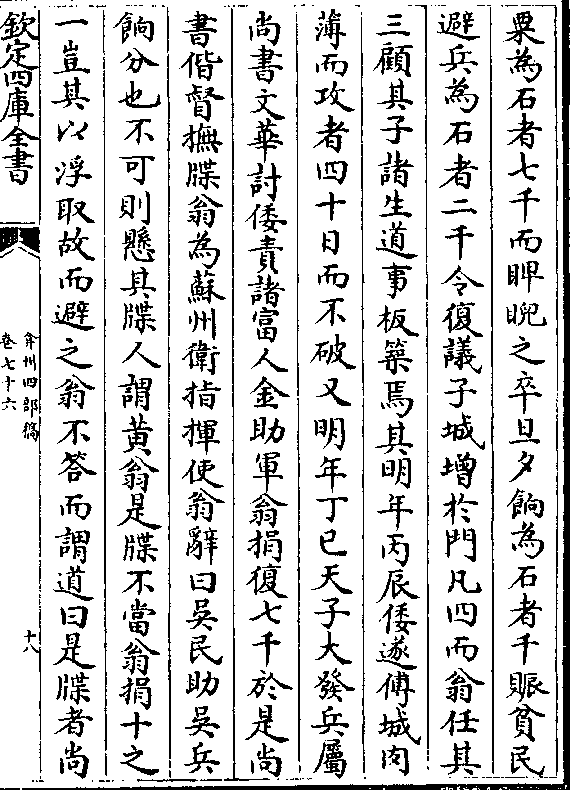 粟為石者七千而睥睨之卒旦夕餉為石者千賑貧民
避兵為石者二千令復議子城增於門凡四而翁任其
三顧其子諸生道事板築焉其明年丙辰倭遂傅城肉
薄而攻者四十日而不破又明年丁巳天子大發兵屬
尚書文華討倭責諸富人金助軍翁捐復七千於是尚
書偕督撫牒翁為蘇州衛指揮使翁辭曰吳民助吳兵
餉分也不可則懸其牒人謂黃翁是牒不當翁捐十之
一豈其以浮取故而避之翁不答而謂道曰是牒者尚
欽定四庫全書
弇州四部稿
卷七十六
十八